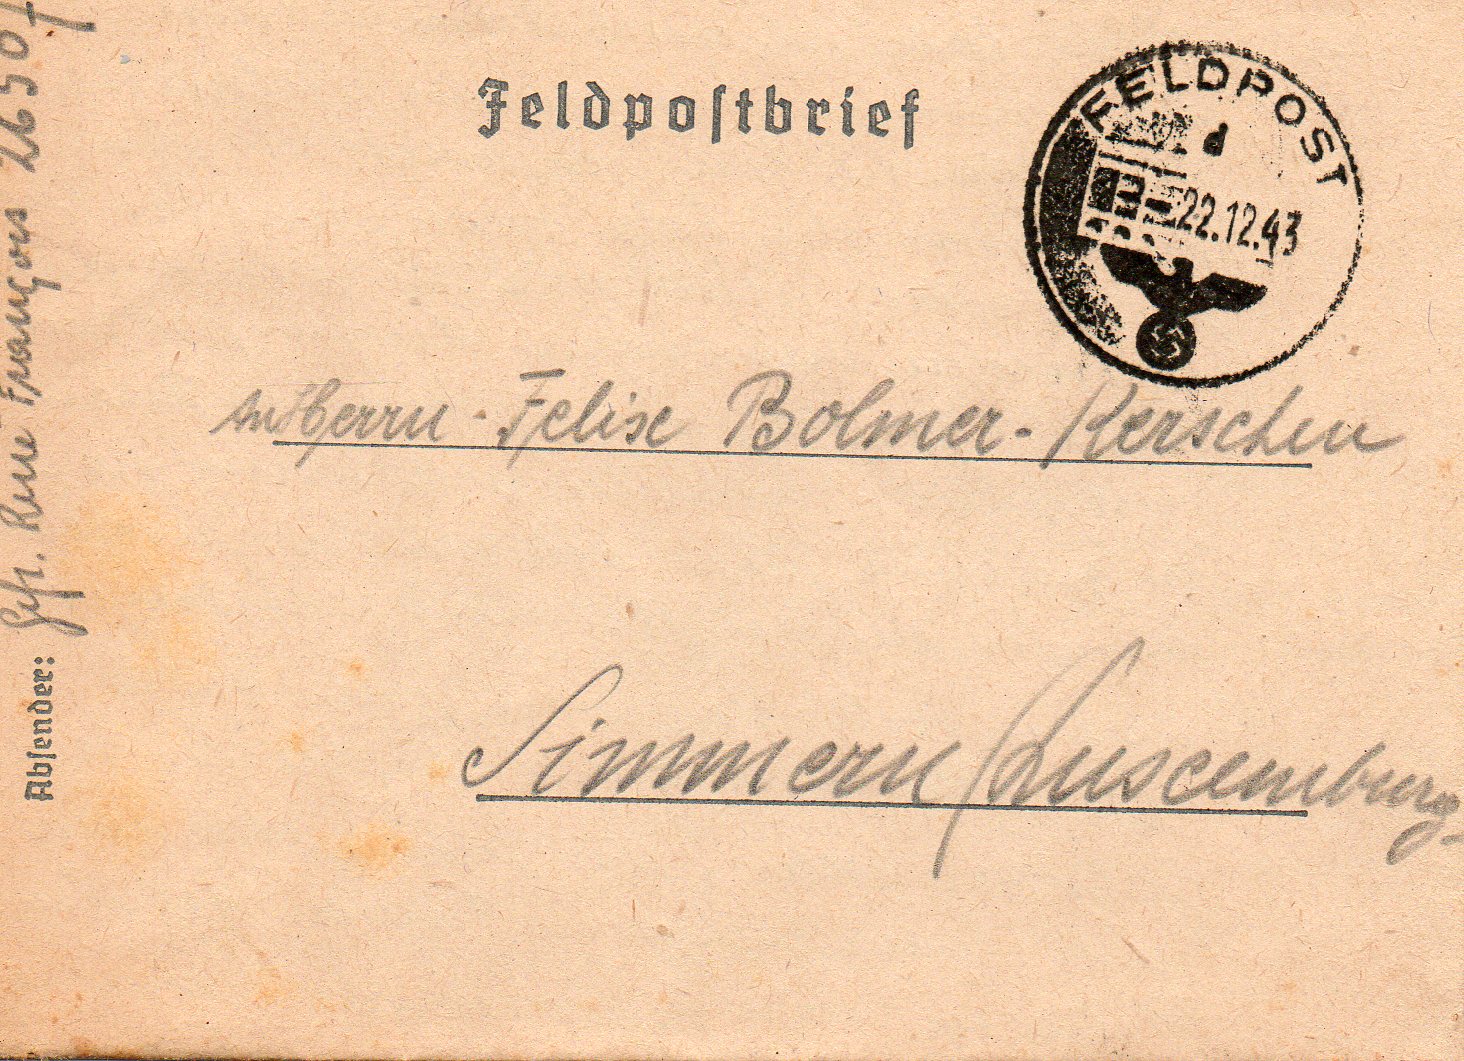 Feldpostbrief
FELDPOST
d
22.12.43
An Herrn Felise Bolmer-Kerschen
Simmern (Luxemburg
Absender: Gefr. René François 26507